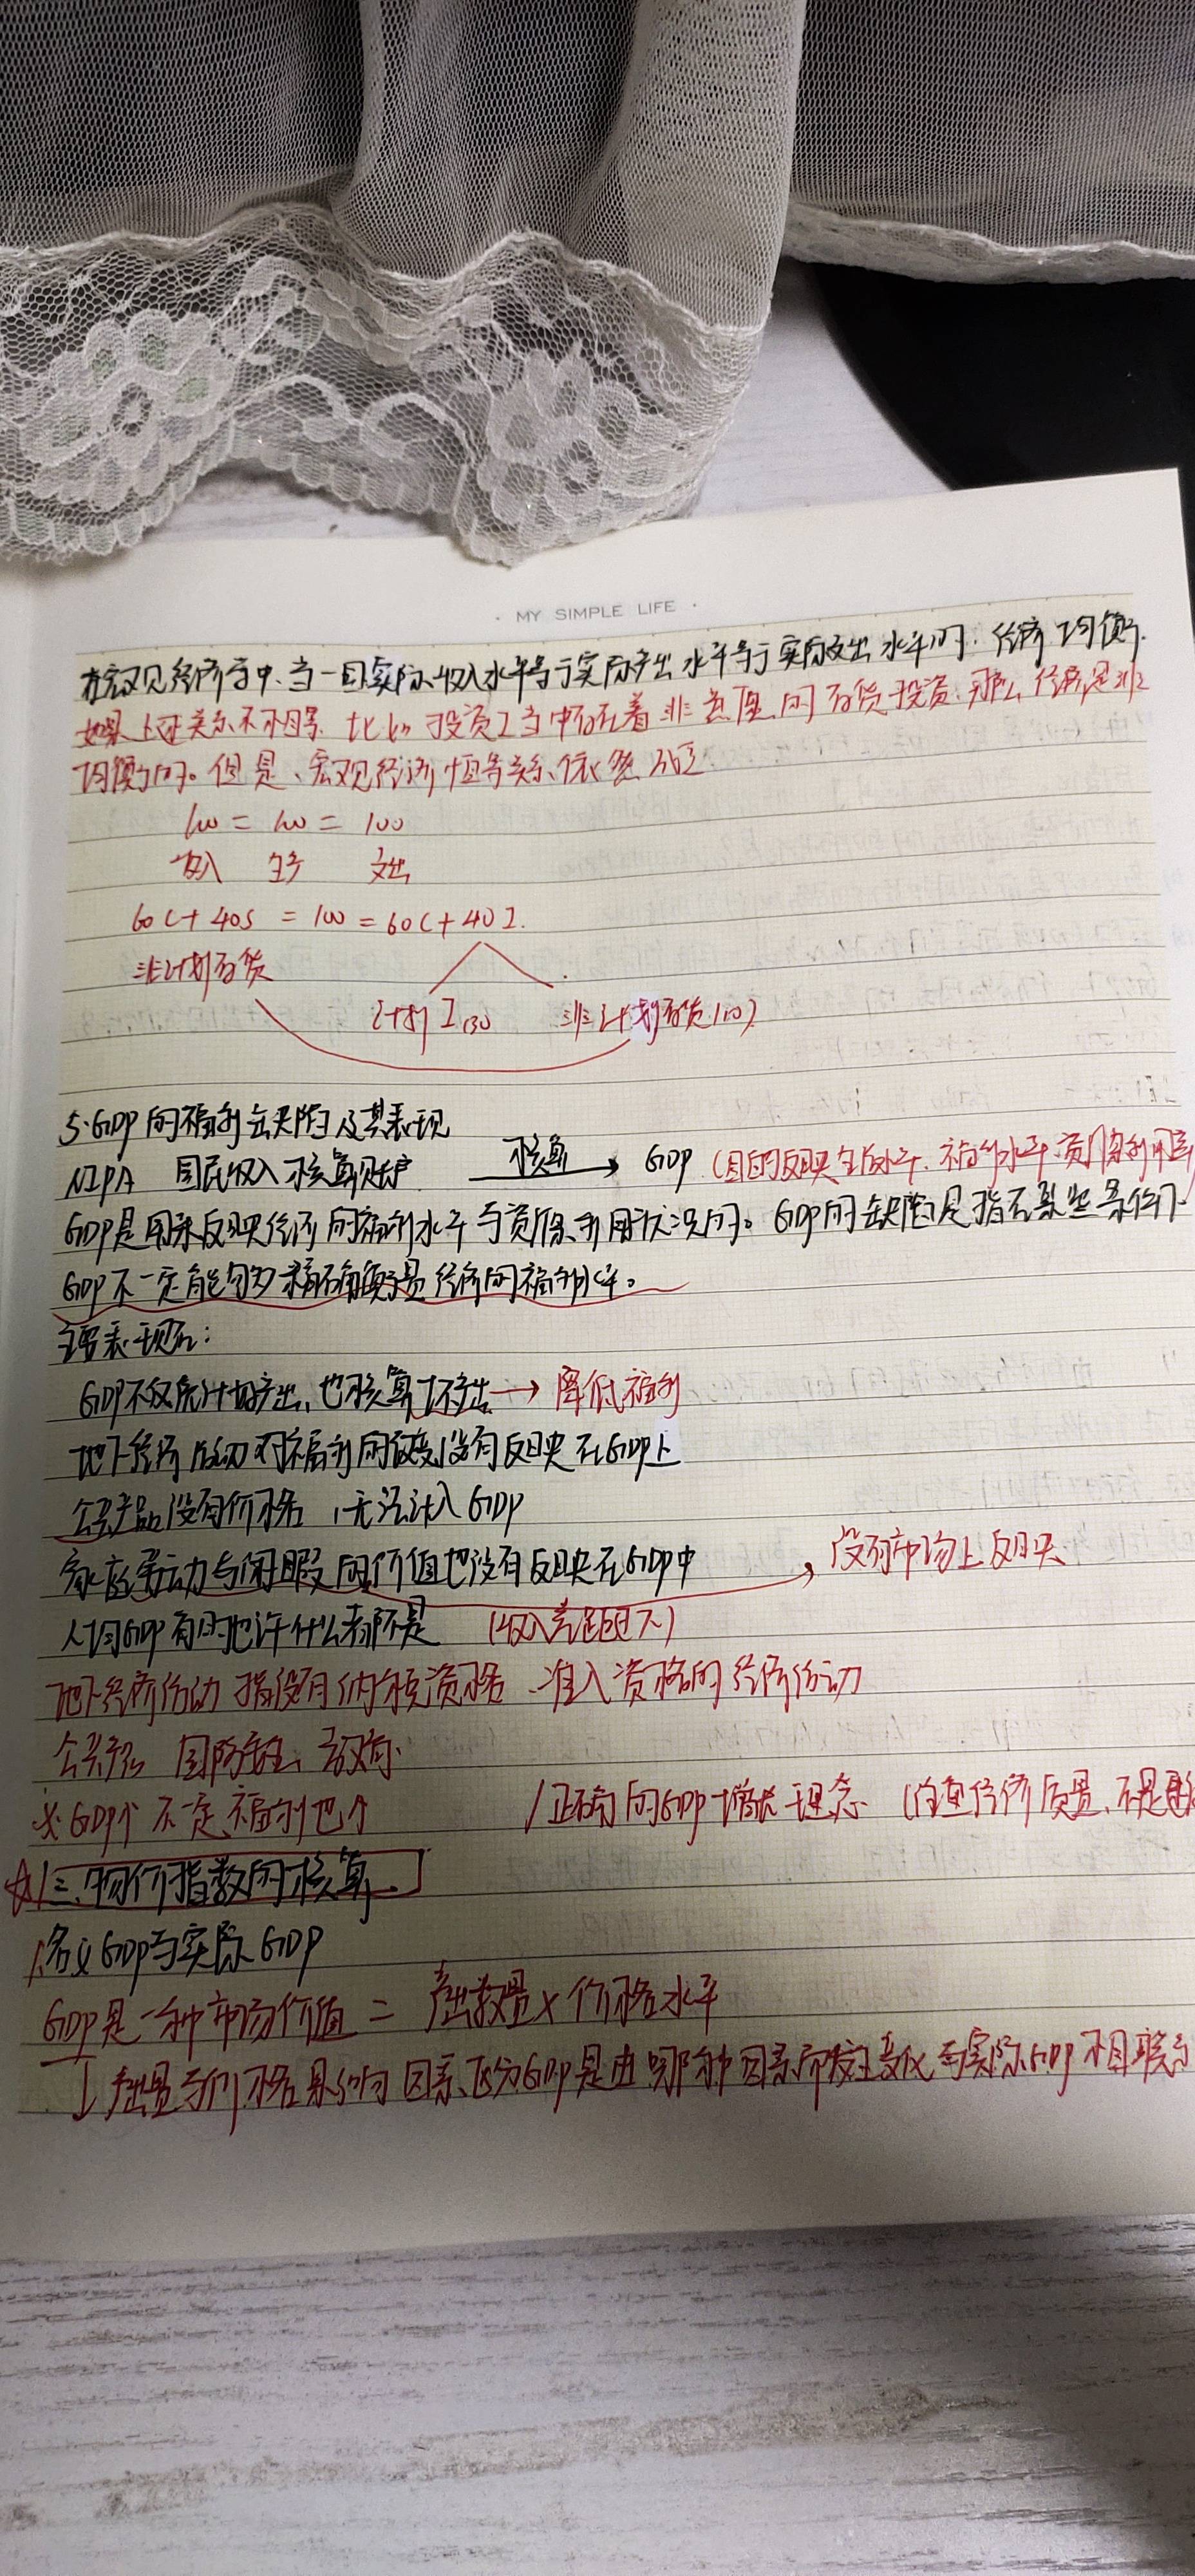 · MY SIMPLE LIFE ·
在宏观经济学中,当一国实际收入水平等于实际产出水平等于实际支出水平时,经济均衡.
如果上述关系不不相等,比如投资I当中存在着非意愿的存货投资,那么经济是非
均衡的。但是、宏观经济恒等关系依然
100 = 100 = 100
收入 产 支出
60C+40S = 100 = 60C+40I.
非计划存货
计划I(30 非计划存货(10)
5.GDP的福利缺陷及其表现
NIPA 国民收入核算账户 核算→ GDP (目的反映生活水平、福利水平、资源利用
GDP是用来反映经济的福利水平与资源利用状况的。GDP的缺陷是指在某些条件下
GDP不一定能够准确衡量经济的福利水平。
主要表现在:
GDP不仅统计好产出,也核算坏产出→降低福利
地下经济活动对福利的改变没有反映在GDP上
公共产品没有价格,无法计入GDP
家庭劳动与闲暇的价值也没有反映在GDP中 → 没有市场上反映
人均GDP有时也许什么都不是 (收入差距过大)
地下经济活动 指没有纳税资格、准入资格的经济活动
公共产品 国防安全、教育.
※GDP↑不一定福利也↑ /正确的GDP增长理念 (注重经济质量、不是
☆三.物价指数的核算
1.名义GDP与实际GDP
GDP是一种市场价值 = 产出数量×价格水平
↓产出量与价格影响因素、区分GDP是由哪种因素而发生变化与实际GDP相联系